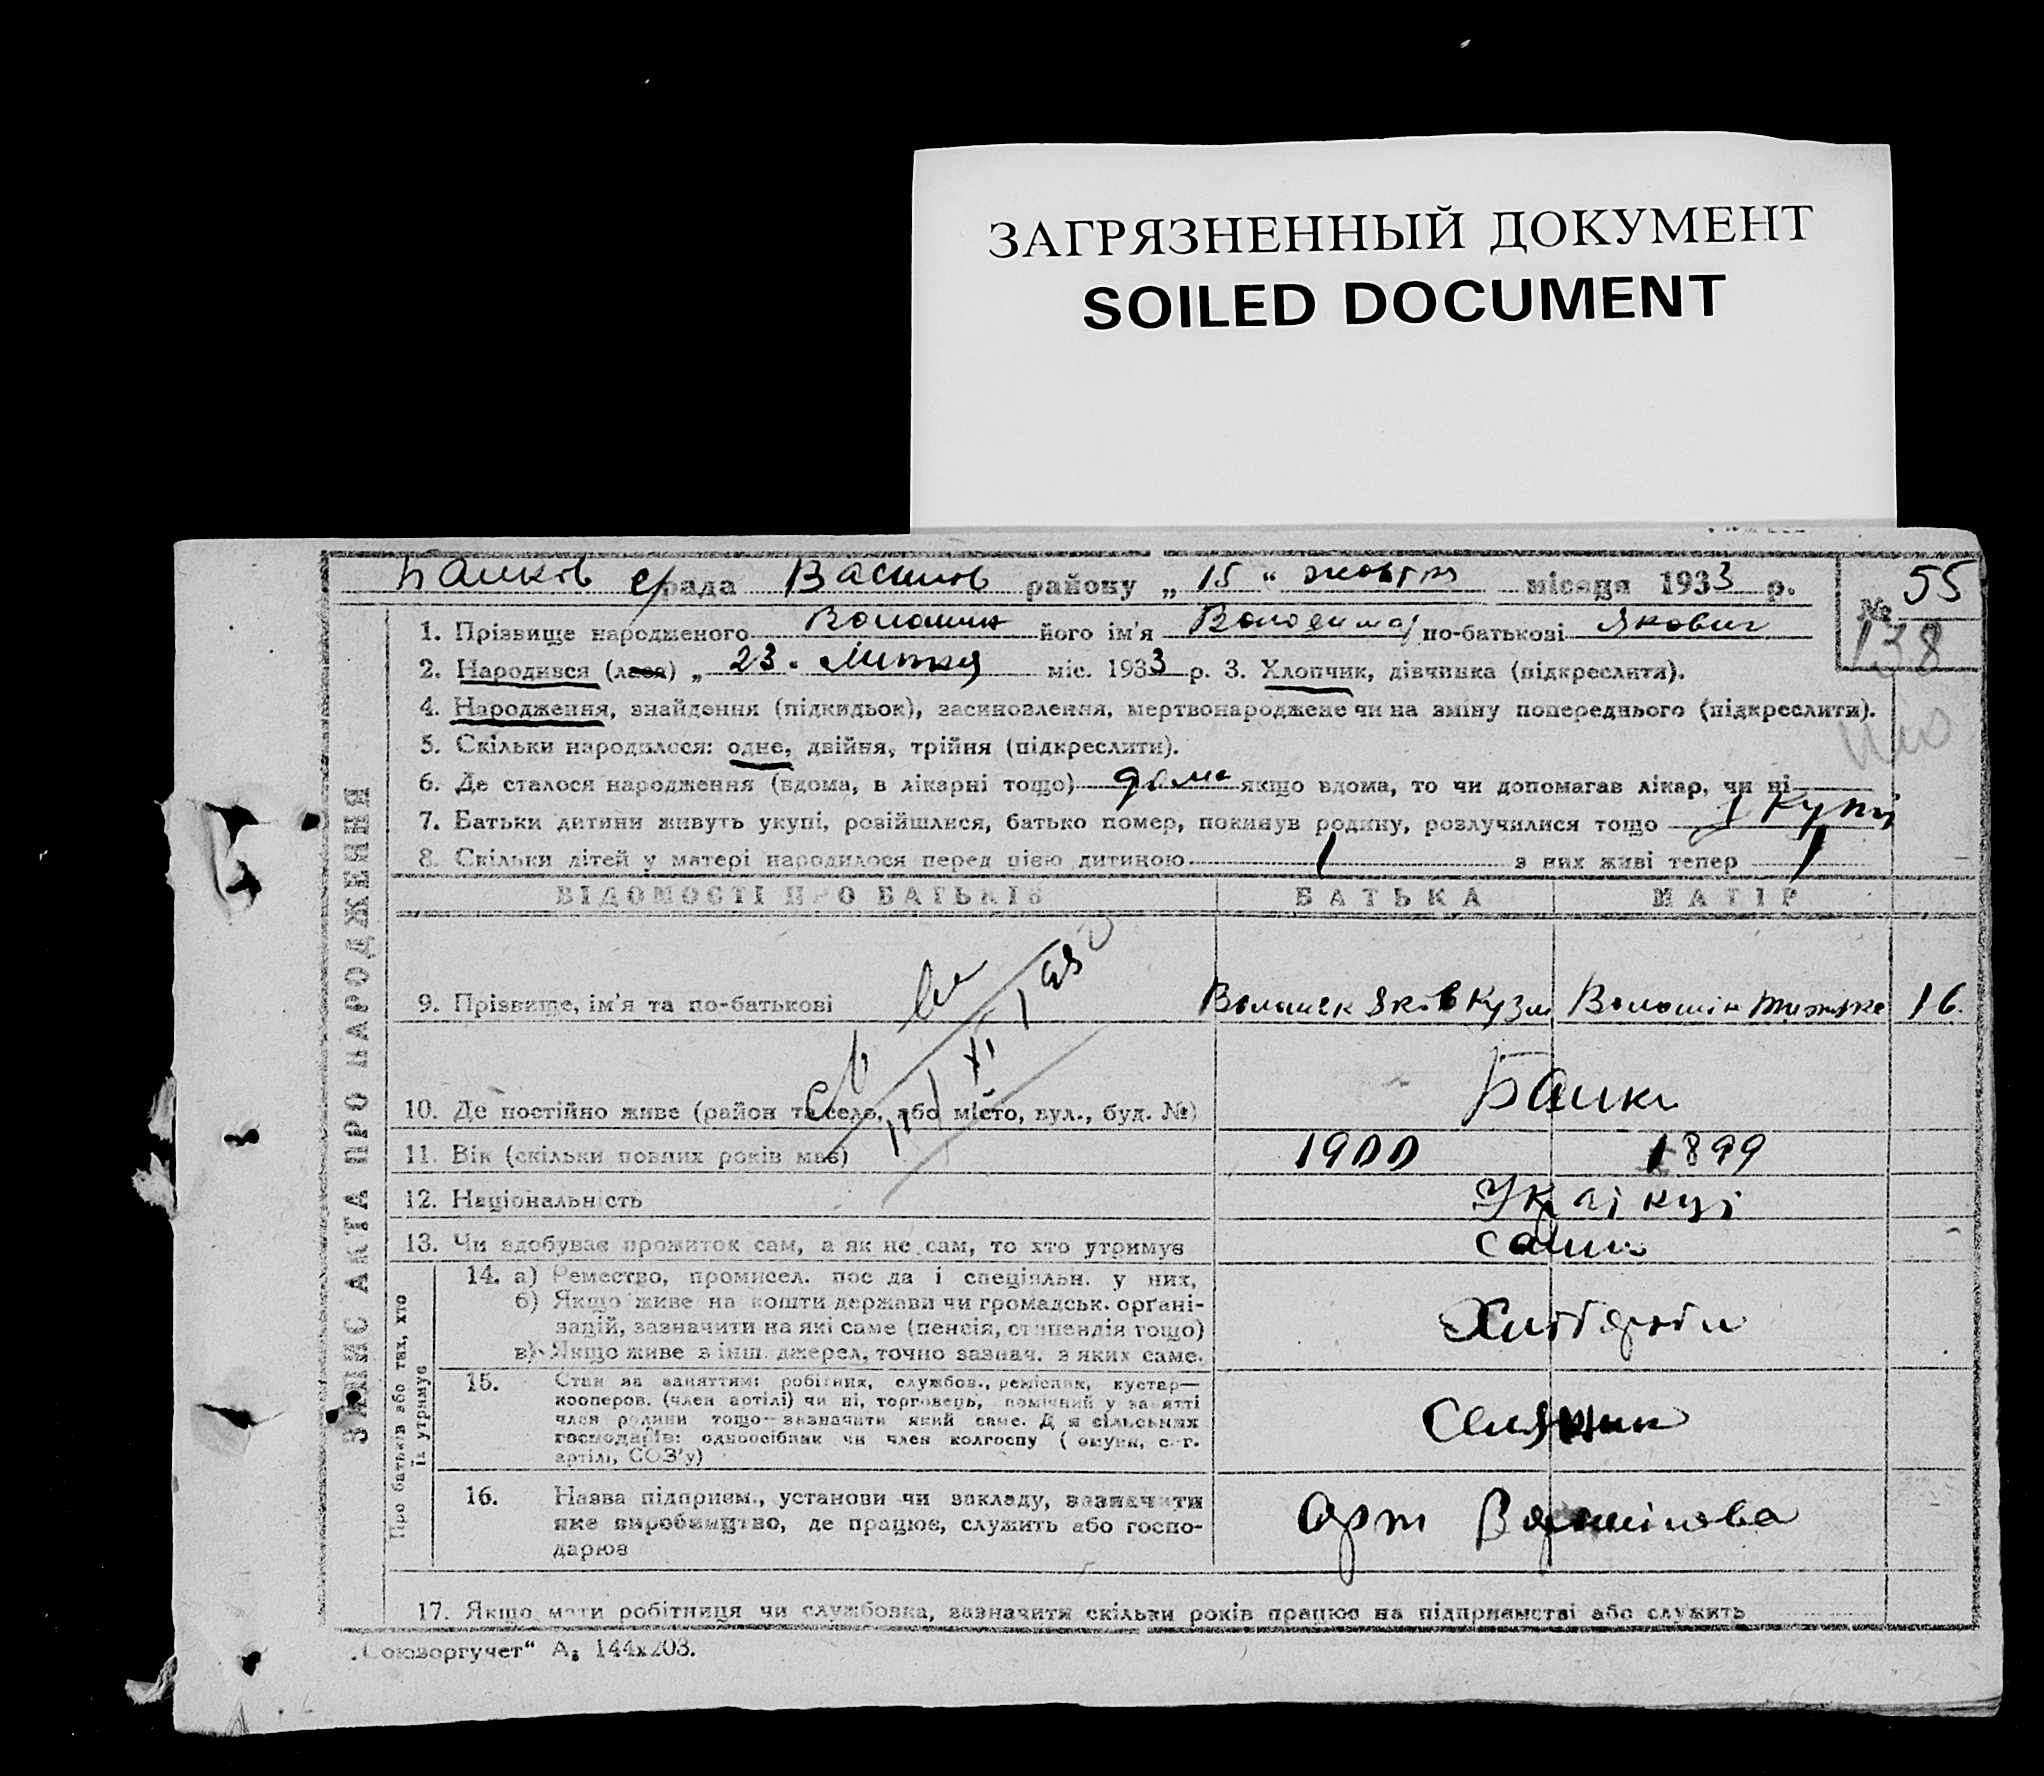 ЗАГРЯЗНЕННЫЙ ДОКУМЕНТ
SOILED DOCUMENT
Балков с/рада Василов району „15“ жовтня місяця 1933 р.
№ 55
138
1. Прізвище народженого Волошин його ім'я Володимир по-батькові Якович
2. Народився (лася) „23. Липня міс. 1933 р. 3. Хлопчик, дівчинка (підкреслити).
4. Народження, знайдення (підкидьок), засиновлення, мертвонароджене чи на зміну попереднього (підкреслити).
5. Скільки народилося: одне, двійня, трійня (підкреслити).
6. Де сталося народження (вдома, в лікарні тощо) дома якщо вдома, то чи допомагав лікар, чи ні
7. Батьки дитини живуть укупі, розійшлися, батько помер, покинув родину, розлучилися тощо укупі
8. Скільки дітей у матері народилося перед цією дитиною 1 з них живі тепер 1
ВІДОМОСТІ ПРО БАТЬКІВ БАТЬКА МАТІР
9. Прізвище, ім'я та по-батькові Яков Кузм Волошін 16.
10. Де постійно живе (район та село, або місто, вул., буд. №) Балки
11. Вік (скільки повних років має) 1900 1899
12. Національність
13. Чи здобуває прожиток сам, а як не сам, то хто утримує сами
ЗАПИС АКТА ПРО НАРОДЖЕННЯ
Про батьків або тих, хто
їх утримує
14. а) Ремество, промисел, посада і спеціяльн. у них,
б) Якщо живе на кошти держави чи громадськ. орґані-
зацій, зазначити на які саме (пенсія, стипендія тощо)
в) Якщо живе з інш. джерел, точно зазнач. з яких саме.
Хлібороби
15. Стан за заняттям: робітник, службов., ремісник, кустар—
кооперов. (член артілі) чи ні, торговець, помічний у занятті
член родини тощо—зазначити який саме. Для сільських
господарів: одноосібник чи член колгоспу (комуни, с.-г.
артілі, СОЗ'у)
Селяни
16. Назва підприєм., установи чи закладу, зазначити
яке виробництво, де працює, служить або госпо-
дарює
Арт Ворошілова
17. Якщо мати робітниця чи службовка, зазначити скільки років працює на підприємстві або служить
„Союзоргучет“ А₅ 144х203.